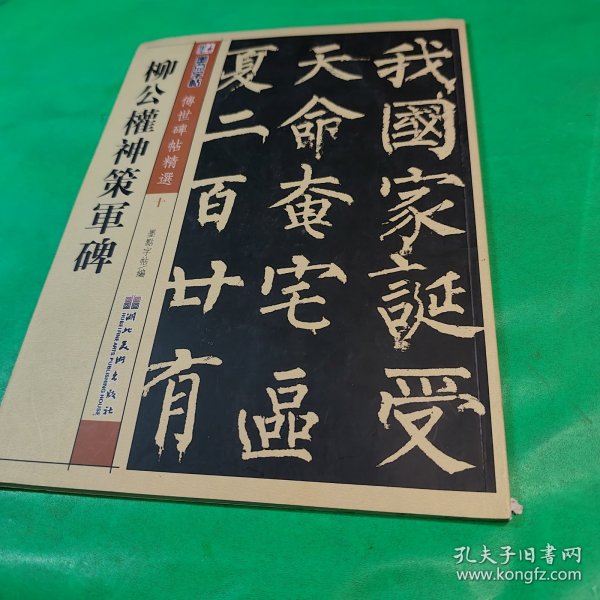 柳公權神策軍碑
墨點字帖
傳世碑帖精選
十
墨點字帖 編
湖北美術出版社
HUBEI FINE ARTS PUBLISHING HOUSE
我國家誕受
天命奄宅區
夏二百廿有
孔夫子旧书网
www.kongfz.com